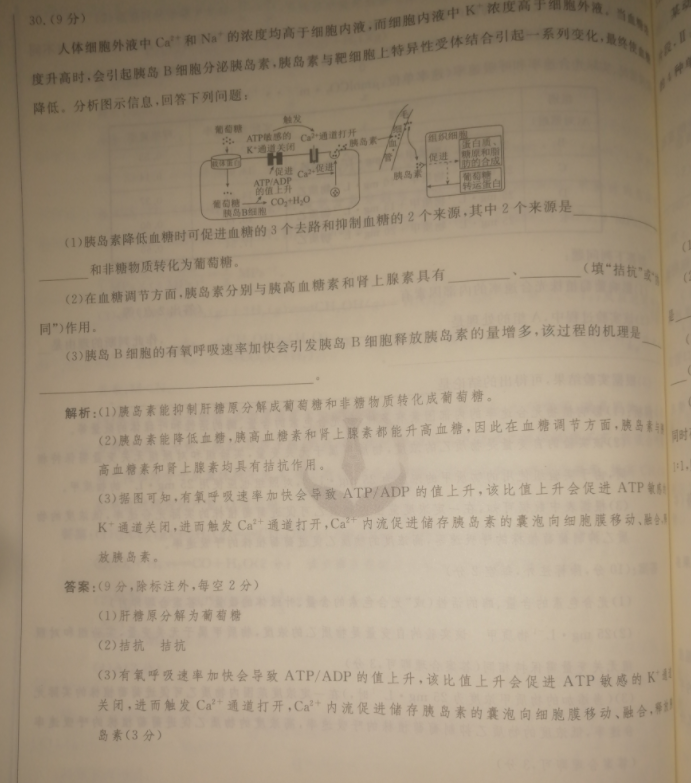 30.(9分)
人体细胞外液中 Ca²⁺ 和 Na⁺ 的浓度均高于细胞内液,而细胞内液中 K⁺ 浓度高于细胞外液。当血糖浓
度升高时,会引起胰岛 B 细胞分泌胰岛素,胰岛素与靶细胞上特异性受体结合引起一系列变化,最终使血糖
降低。分析图示信息,回答下列问题:
触发
葡萄糖
ATP敏感的
K⁺通道关闭
Ca²⁺通道打开
胰岛素
毛细血管
组织细胞
促进
蛋白质、
糖原和脂
肪的合成
葡萄糖
转运蛋白
胰岛素
促进
Ca²⁺
促进
ATP/ADP
的值上升
葡萄糖
CO₂+H₂O
胰岛B细胞
(1)胰岛素降低血糖时可促进血糖的 3 个去路和抑制血糖的 2 个来源,其中 2 个来源是
和非糖物质转化为葡萄糖。
(2)在血糖调节方面,胰岛素分别与胰高血糖素和肾上腺素具有 、 (填“拮抗”或“
同”)作用。
(3)胰岛 B 细胞的有氧呼吸速率加快会引发胰岛 B 细胞释放胰岛素的量增多,该过程的机理是
。
解析:(1)胰岛素能抑制肝糖原分解成葡萄糖和非糖物质转化成葡萄糖。
(2)胰岛素能降低血糖,胰高血糖素和肾上腺素都能升高血糖,因此在血糖调节方面,胰岛素与
高血糖素和肾上腺素均具有拮抗作用。
(3)据图可知,有氧呼吸速率加快会导致 ATP/ADP 的值上升,该比值上升会促进 ATP 敏感
K⁺ 通道关闭,进而触发 Ca²⁺ 通道打开,Ca²⁺ 内流促进储存胰岛素的囊泡向细胞膜移动、融合,
放胰岛素。
答案:(9分,除标注外,每空 2 分)
(1)肝糖原分解为葡萄糖
(2)拮抗 拮抗
(3)有氧呼吸速率加快会导致 ATP/ADP 的值上升,该比值上升会促进 ATP 敏感的 K⁺ 通道
关闭,进而触发 Ca²⁺ 通道打开,Ca²⁺ 内流促进储存胰岛素的囊泡向细胞膜移动、融合,释放
岛素(3分)